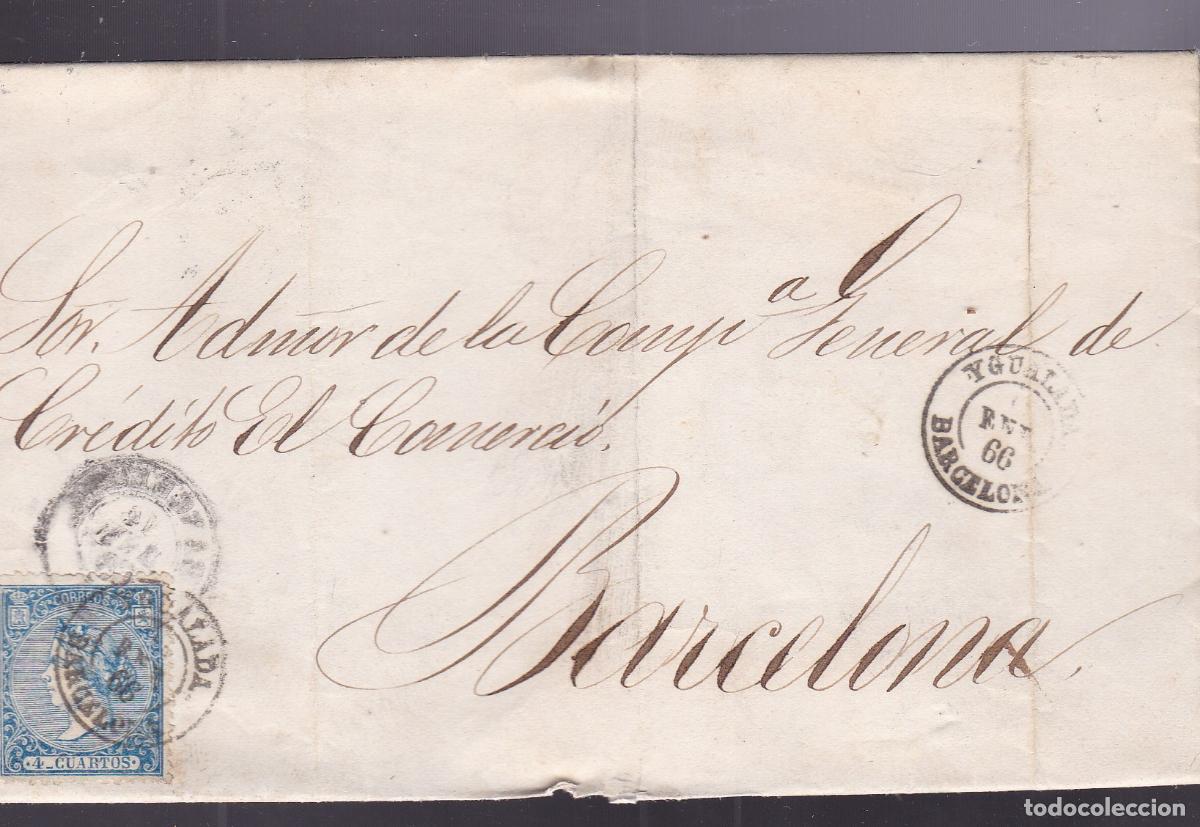 Sor. Admor de la Compª General de
Crédito El Comercio.
Barcelona.
YGUALADA
ENE
66
BARCELONA
CORREOS
4_CUARTOS
UALADA
66
BARCELONA
todocoleccion